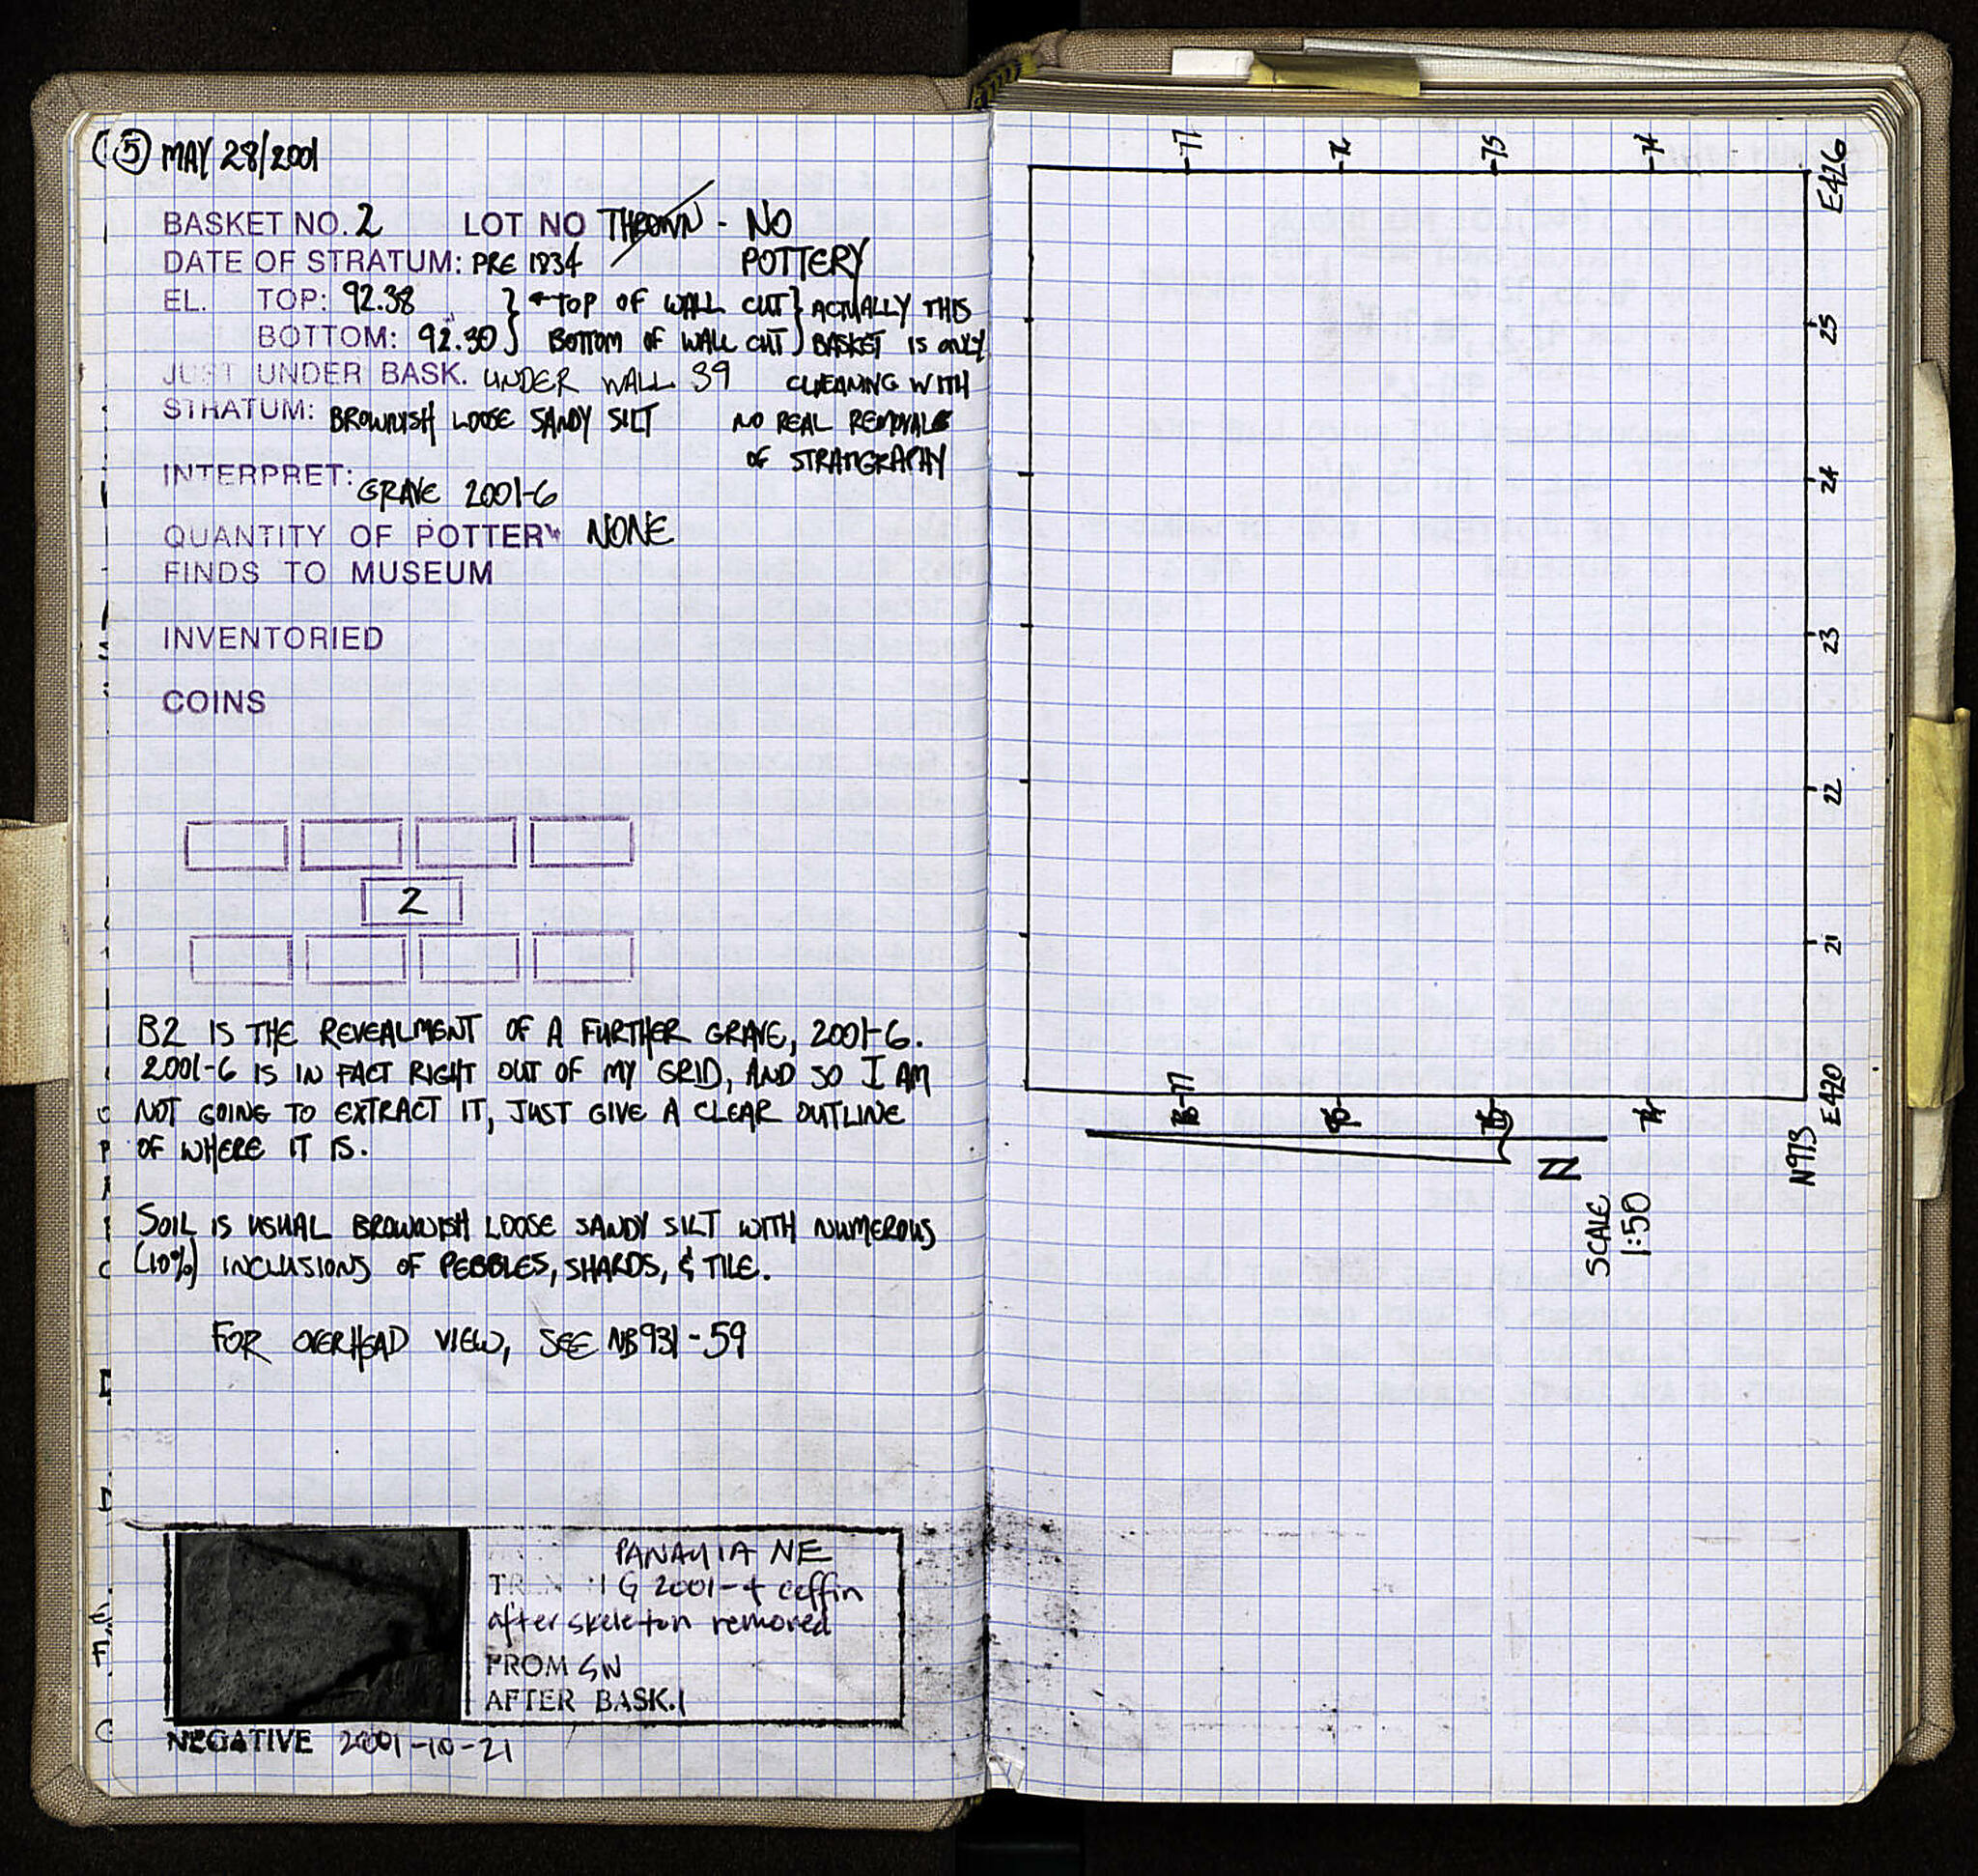 5 MAY 28/2001
BASKET NO. 2 LOT NO THROWN - NO
DATE OF STRATUM: PRE 1834 POTTERY
EL. TOP: 92.38 } ←TOP OF WALL CUT } ACTUALLY THIS
BOTTOM: 92.30 } BOTTOM OF WALL CUT } BASKET IS ONLY
JUST UNDER BASK. UNDER WALL 39 CLEANING WITH
STRATUM: BROWNISH LOOSE SANDY SILT NO REAL REMOVAL
OF STRATIGRAPHY
INTERPRET: GRAVE 2001-6
QUANTITY OF POTTERY NONE
FINDS TO MUSEUM
INVENTORIED
COINS
2
B2 IS THE REVEALMENT OF A FURTHER GRAVE, 2001-6.
2001-6 IS IN FACT RIGHT OUT OF MY GRID, AND SO I AM
NOT GOING TO EXTRACT IT, JUST GIVE A CLEAR OUTLINE
OF WHERE IT IS.
SOIL IS USUAL BROWNISH LOOSE SANDY SILT WITH NUMEROUS
(10%) INCLUSIONS OF PEBBLES, SHARDS, & TILE.
FOR OVERHEAD VIEW, SEE NB931-59
PANAYIA NE
G 2001-4 coffin
after skeleton removed
FROM SW
AFTER BASK. 1
NEGATIVE 2001-10-21
-77
-76
-75
-74
E426
25
24
23
22
21
E420
N973
-77
76
75
74
N
SCALE
1:50